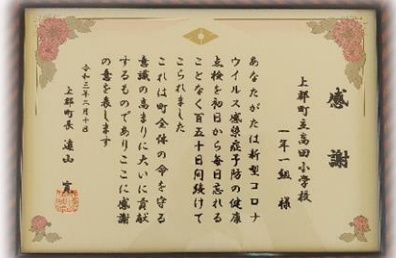 感謝
上郡町立高田小学校
一年一組 様
あなたがたは新型コロナ
ウイルス感染症予防の健康
点検を初日から毎日忘れる
ことなく百五十日間続けて
こられました
これは町全体の命を守る
意識の高まりに大いに貢献
するものでありここに感謝
の意を表します
令和三年二月十日
上郡町長 遠山 寛